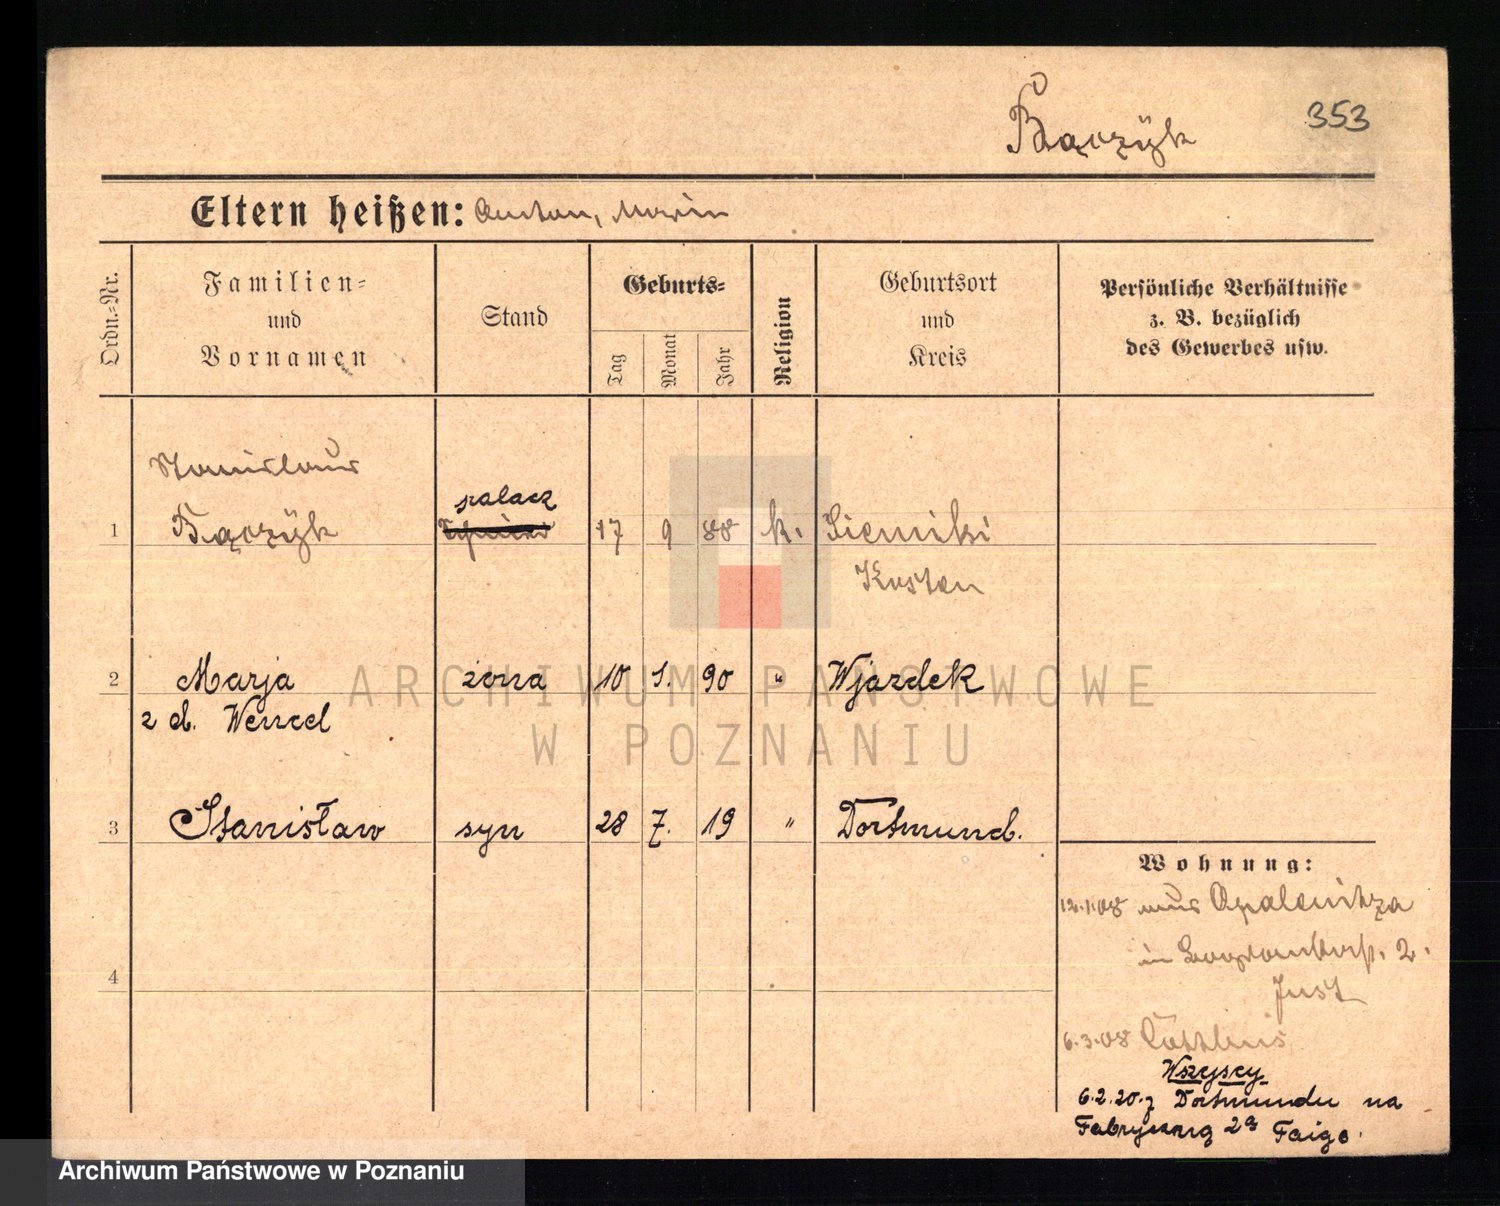 353
Bączyk
Eltern heißen: Anton, Marie
Ordn.-Nr.
Familien-
und
Vornamen
Stand
Geburts-
Tag
Monat
Jahr
Religion
Geburtsort
und
Kreis
Persönliche Verhältnisse
z. B. bezüglich
des Gewerbes usw.
Stanislaus
palacz
1 Bączyk 17 9 88 k.
Kosten
2 Marja żona 10 1. 90 " Wjazdek
z d. Wencel
3 Stanisław syn 28 7. 19 " Dortmund.
Wohnung:
12.1.08 aus Opalenitza
in 2.
Just
4
6.3.08
Wszyscy
6.2.20. z Dortmundu na
Fabryczną 2a Faigo.
ARCHIWUM PAŃSTWOWE
W POZNANIU
Archiwum Państwowe w Poznaniu